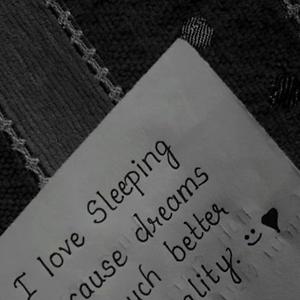 I love Sleeping
cause dreams
uch better
ality. :)